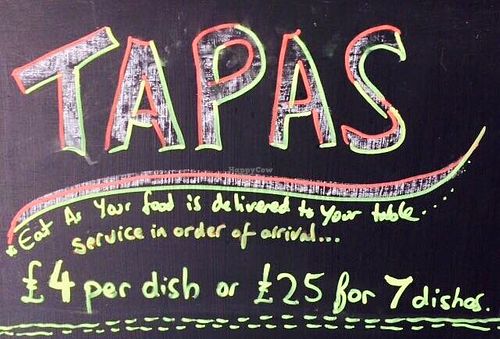 TAPAS
HappyCow
* Eat As your food is delivered to your table....
service in order of arrival...
£4 per dish or £25 for 7 dishes.